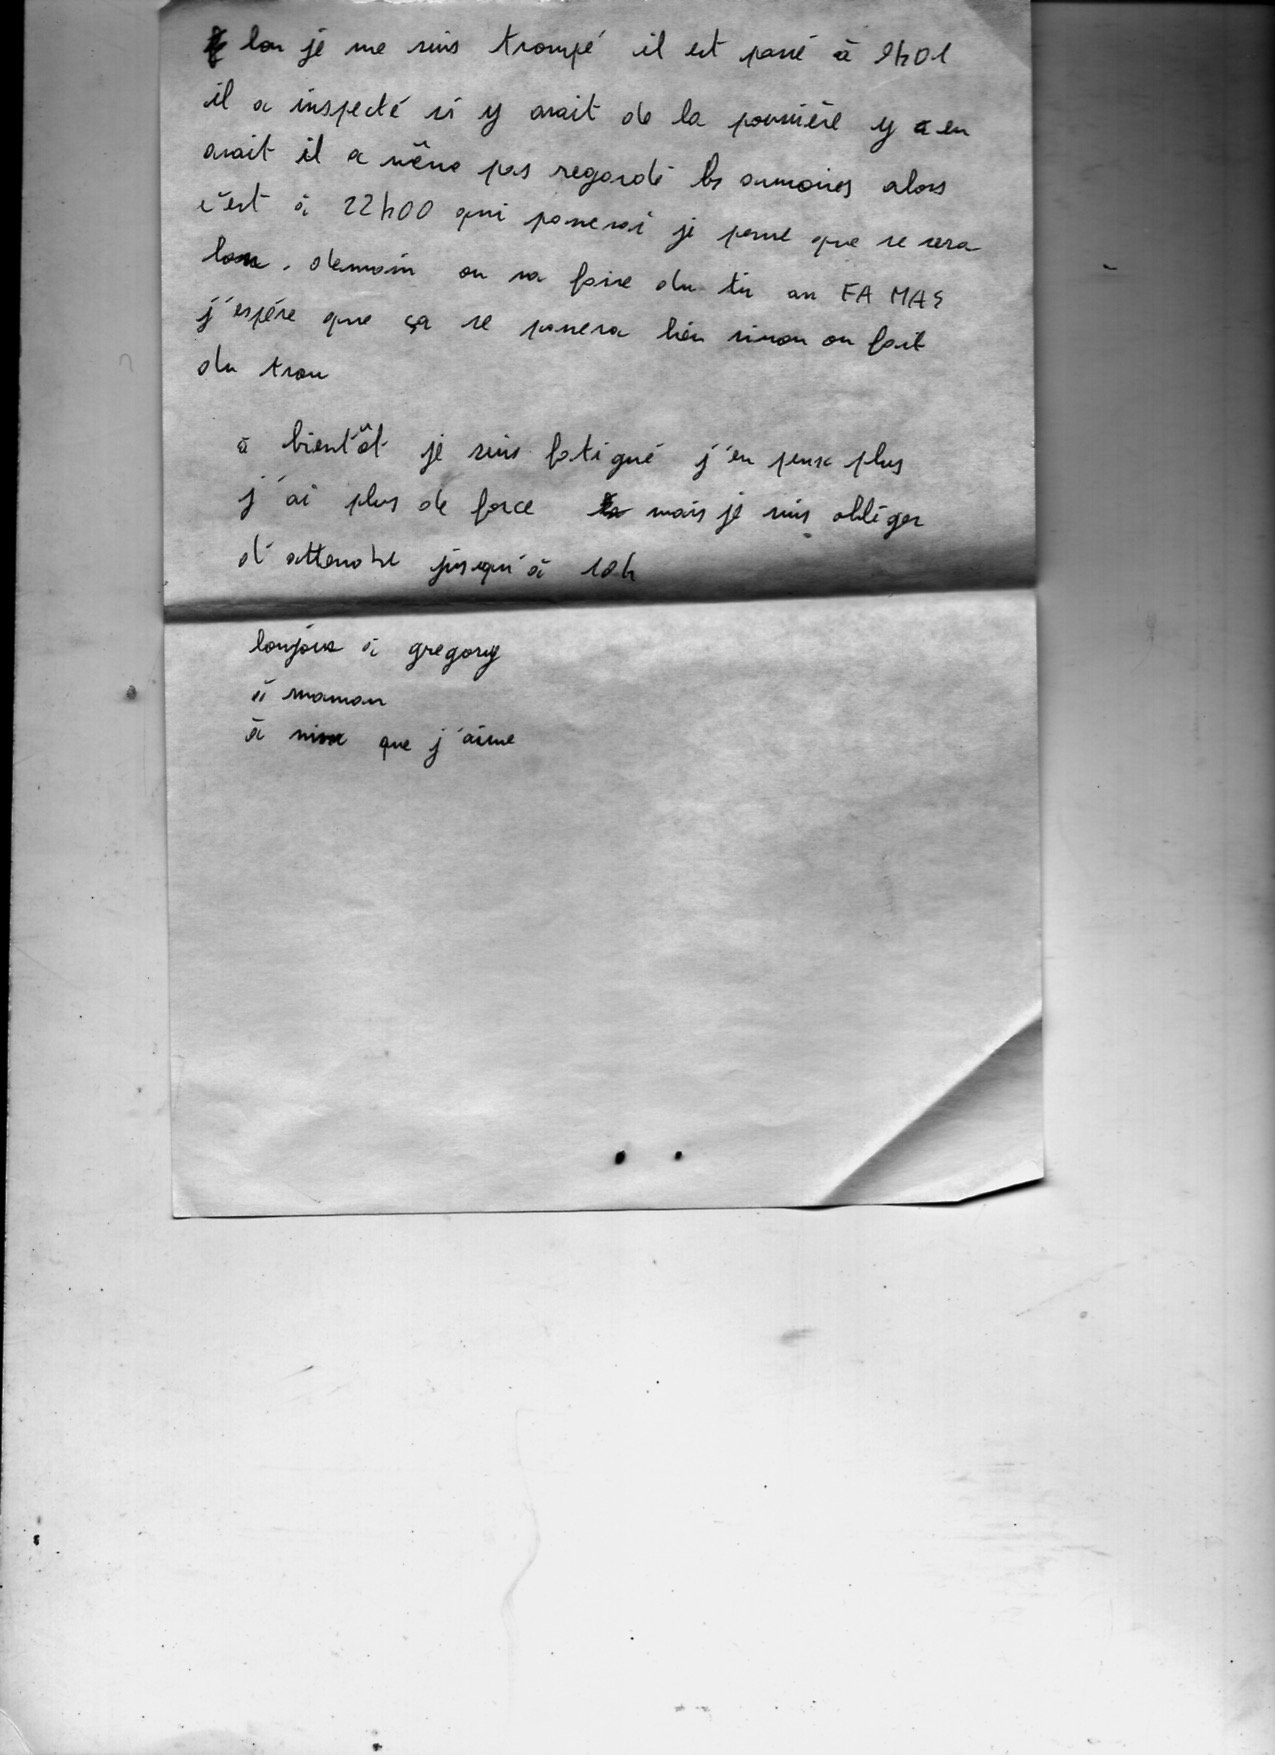 bon je me suis trompé il est passé à 9h01
il a inspecté si y avait de la poussière y a en
avait il a même pas regardé les armoires alors
c'est à 22h00 qui passerai je pense que se sera
bon. demain on va faire du tir au FA MAS
j'espére que ça se passera bien sinon on fait
du trou
à bientôt je suis fatigué j'en peux plus
j'ai plus de force mais je suis obliger
d'attendre jusqu'à 10h
bonjour à gregory
à maman
à que j'aime